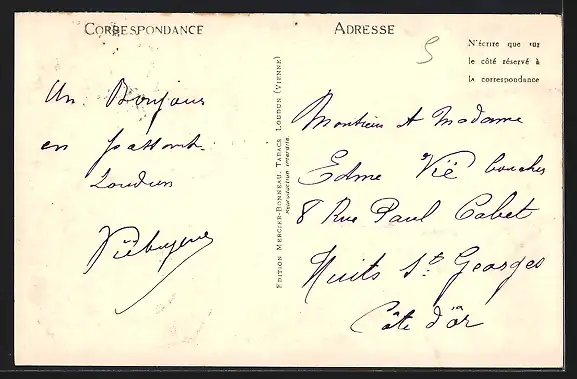 CORRESPONDANCE
ADRESSE
5
N'écrire que sur
le côté réservé à
la correspondance
Un Bonjour
en passant
Loudun
EDITION MERCIER-BONNEAU, TABACS LOUDUN (VIENNE)
Reproduction interdite
Monsieur et Madame
Edme Vié boucher
8 Rue Paul Cabet
Nuits St Georges
Côte d'Or